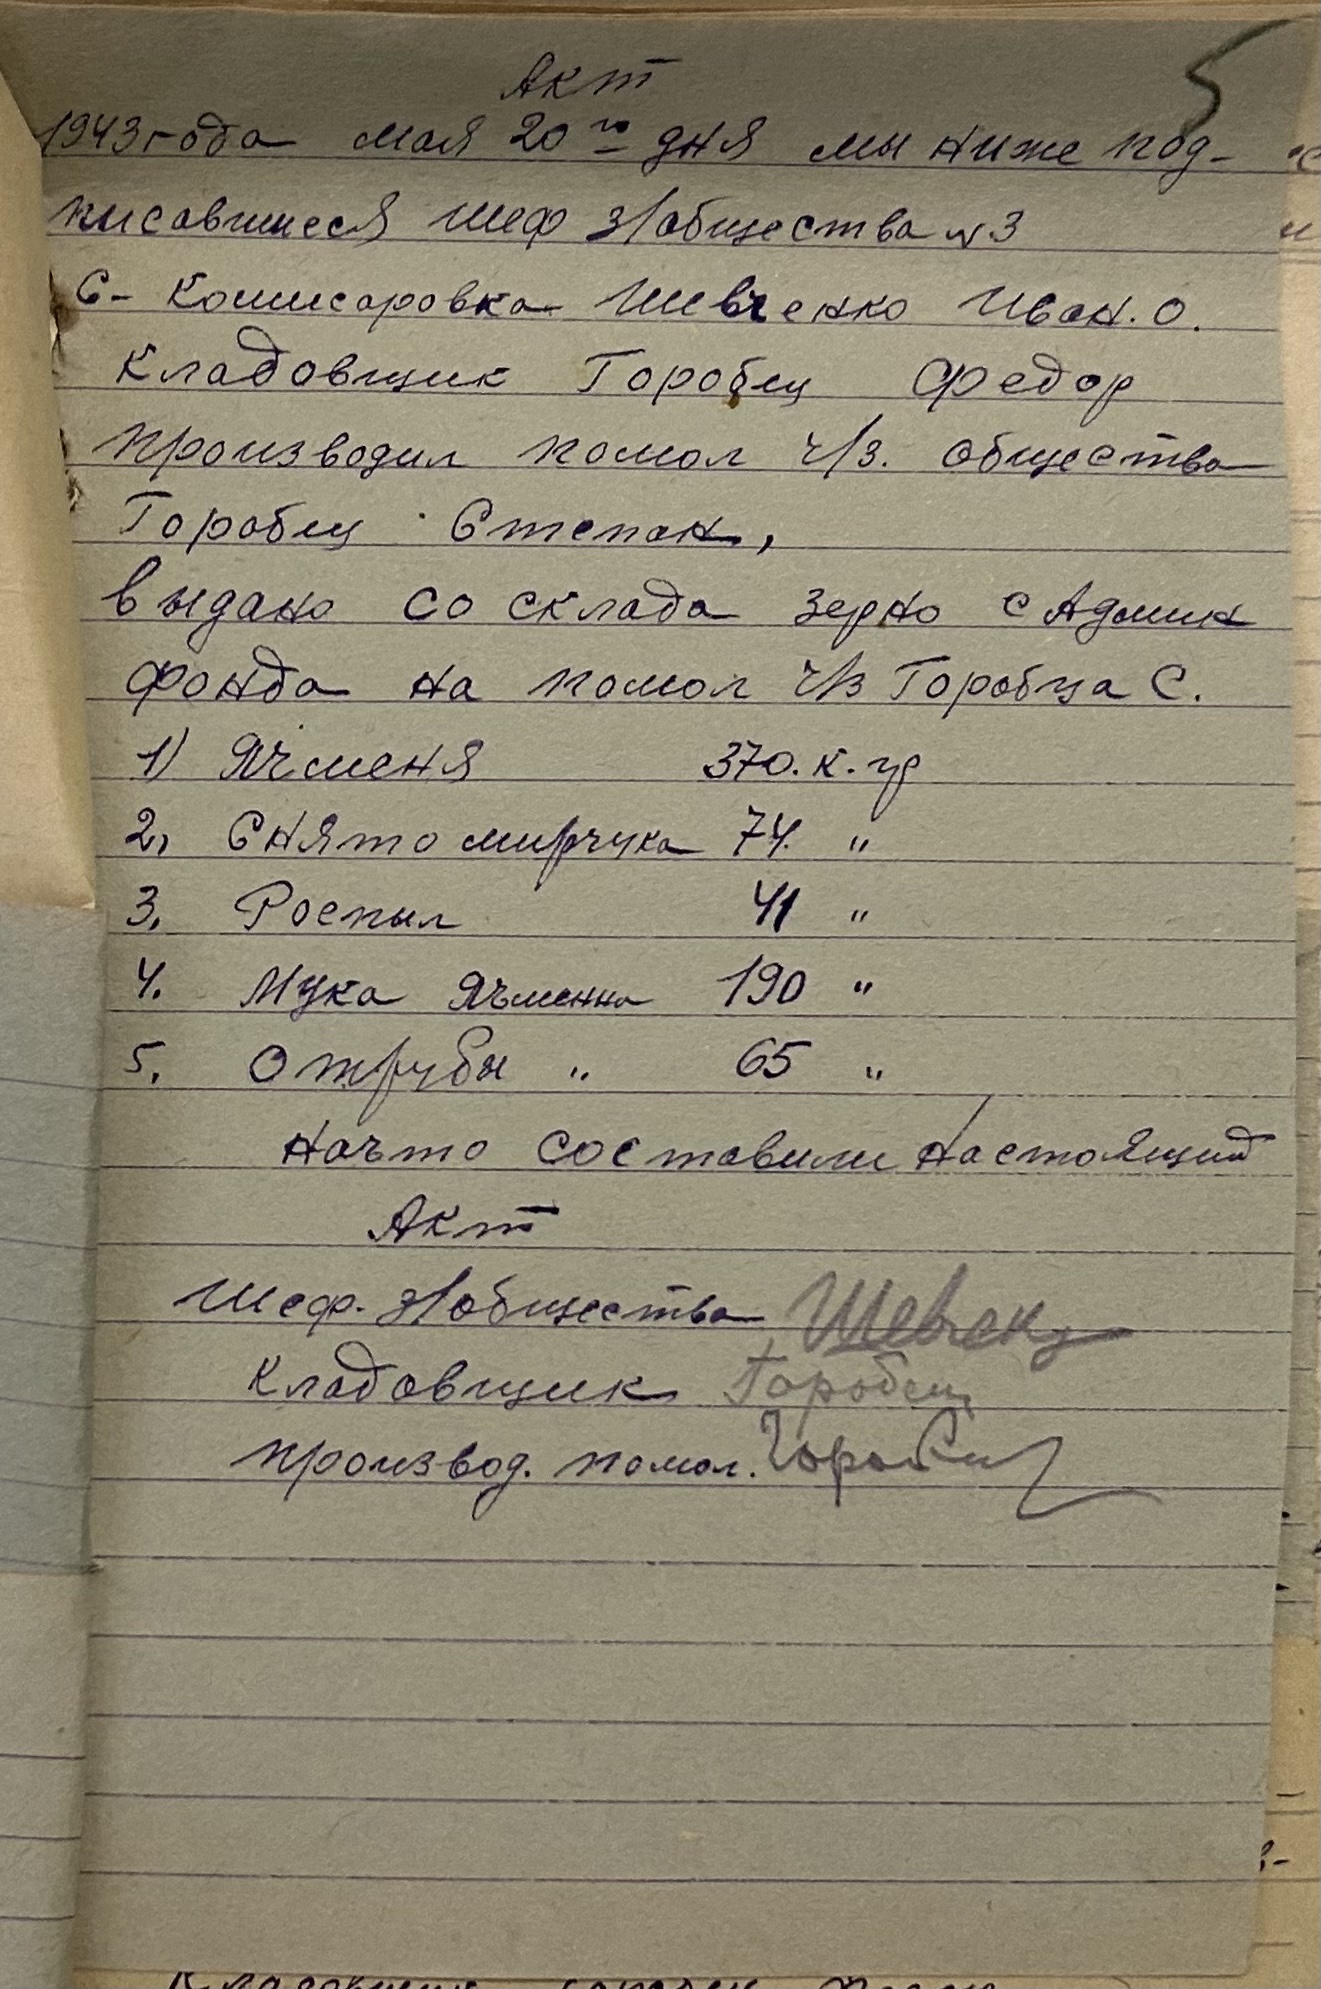 5
Акт
1943 года мая 20го дня мы ниже под-
писавшиеся шеф з/общества №3
С- Комисаровка Шевченко Иван. О.
Кладовщик Горобец Федор
производил помол ч/з. общества
Горобец Степан,
выдано со склада зерно с Админ
фонда на помол ч/з Горобца С.
1) Ячменя 370. к. гр
2, Снято мирчука 74. "
3, Роспыл 41 "
4. Мука ячменна 190 "
5, Отрубы " 65 "
начто составили настоящий
Акт
Шеф. з/общества Шевченко
Кладовщик Горобец
производ. помол. Горобец